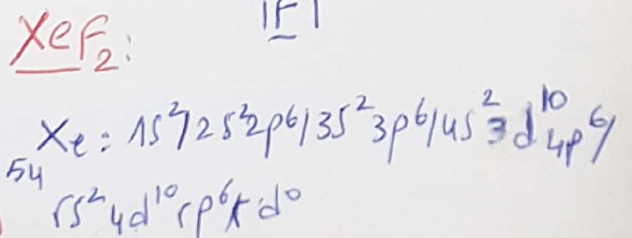 |F|
XeF₂:
₅₄Xe: 1s²/2s²2p⁶/3s²3p⁶/4s²3d¹⁰4p⁶/
5s²4d¹⁰5p⁶5d⁰